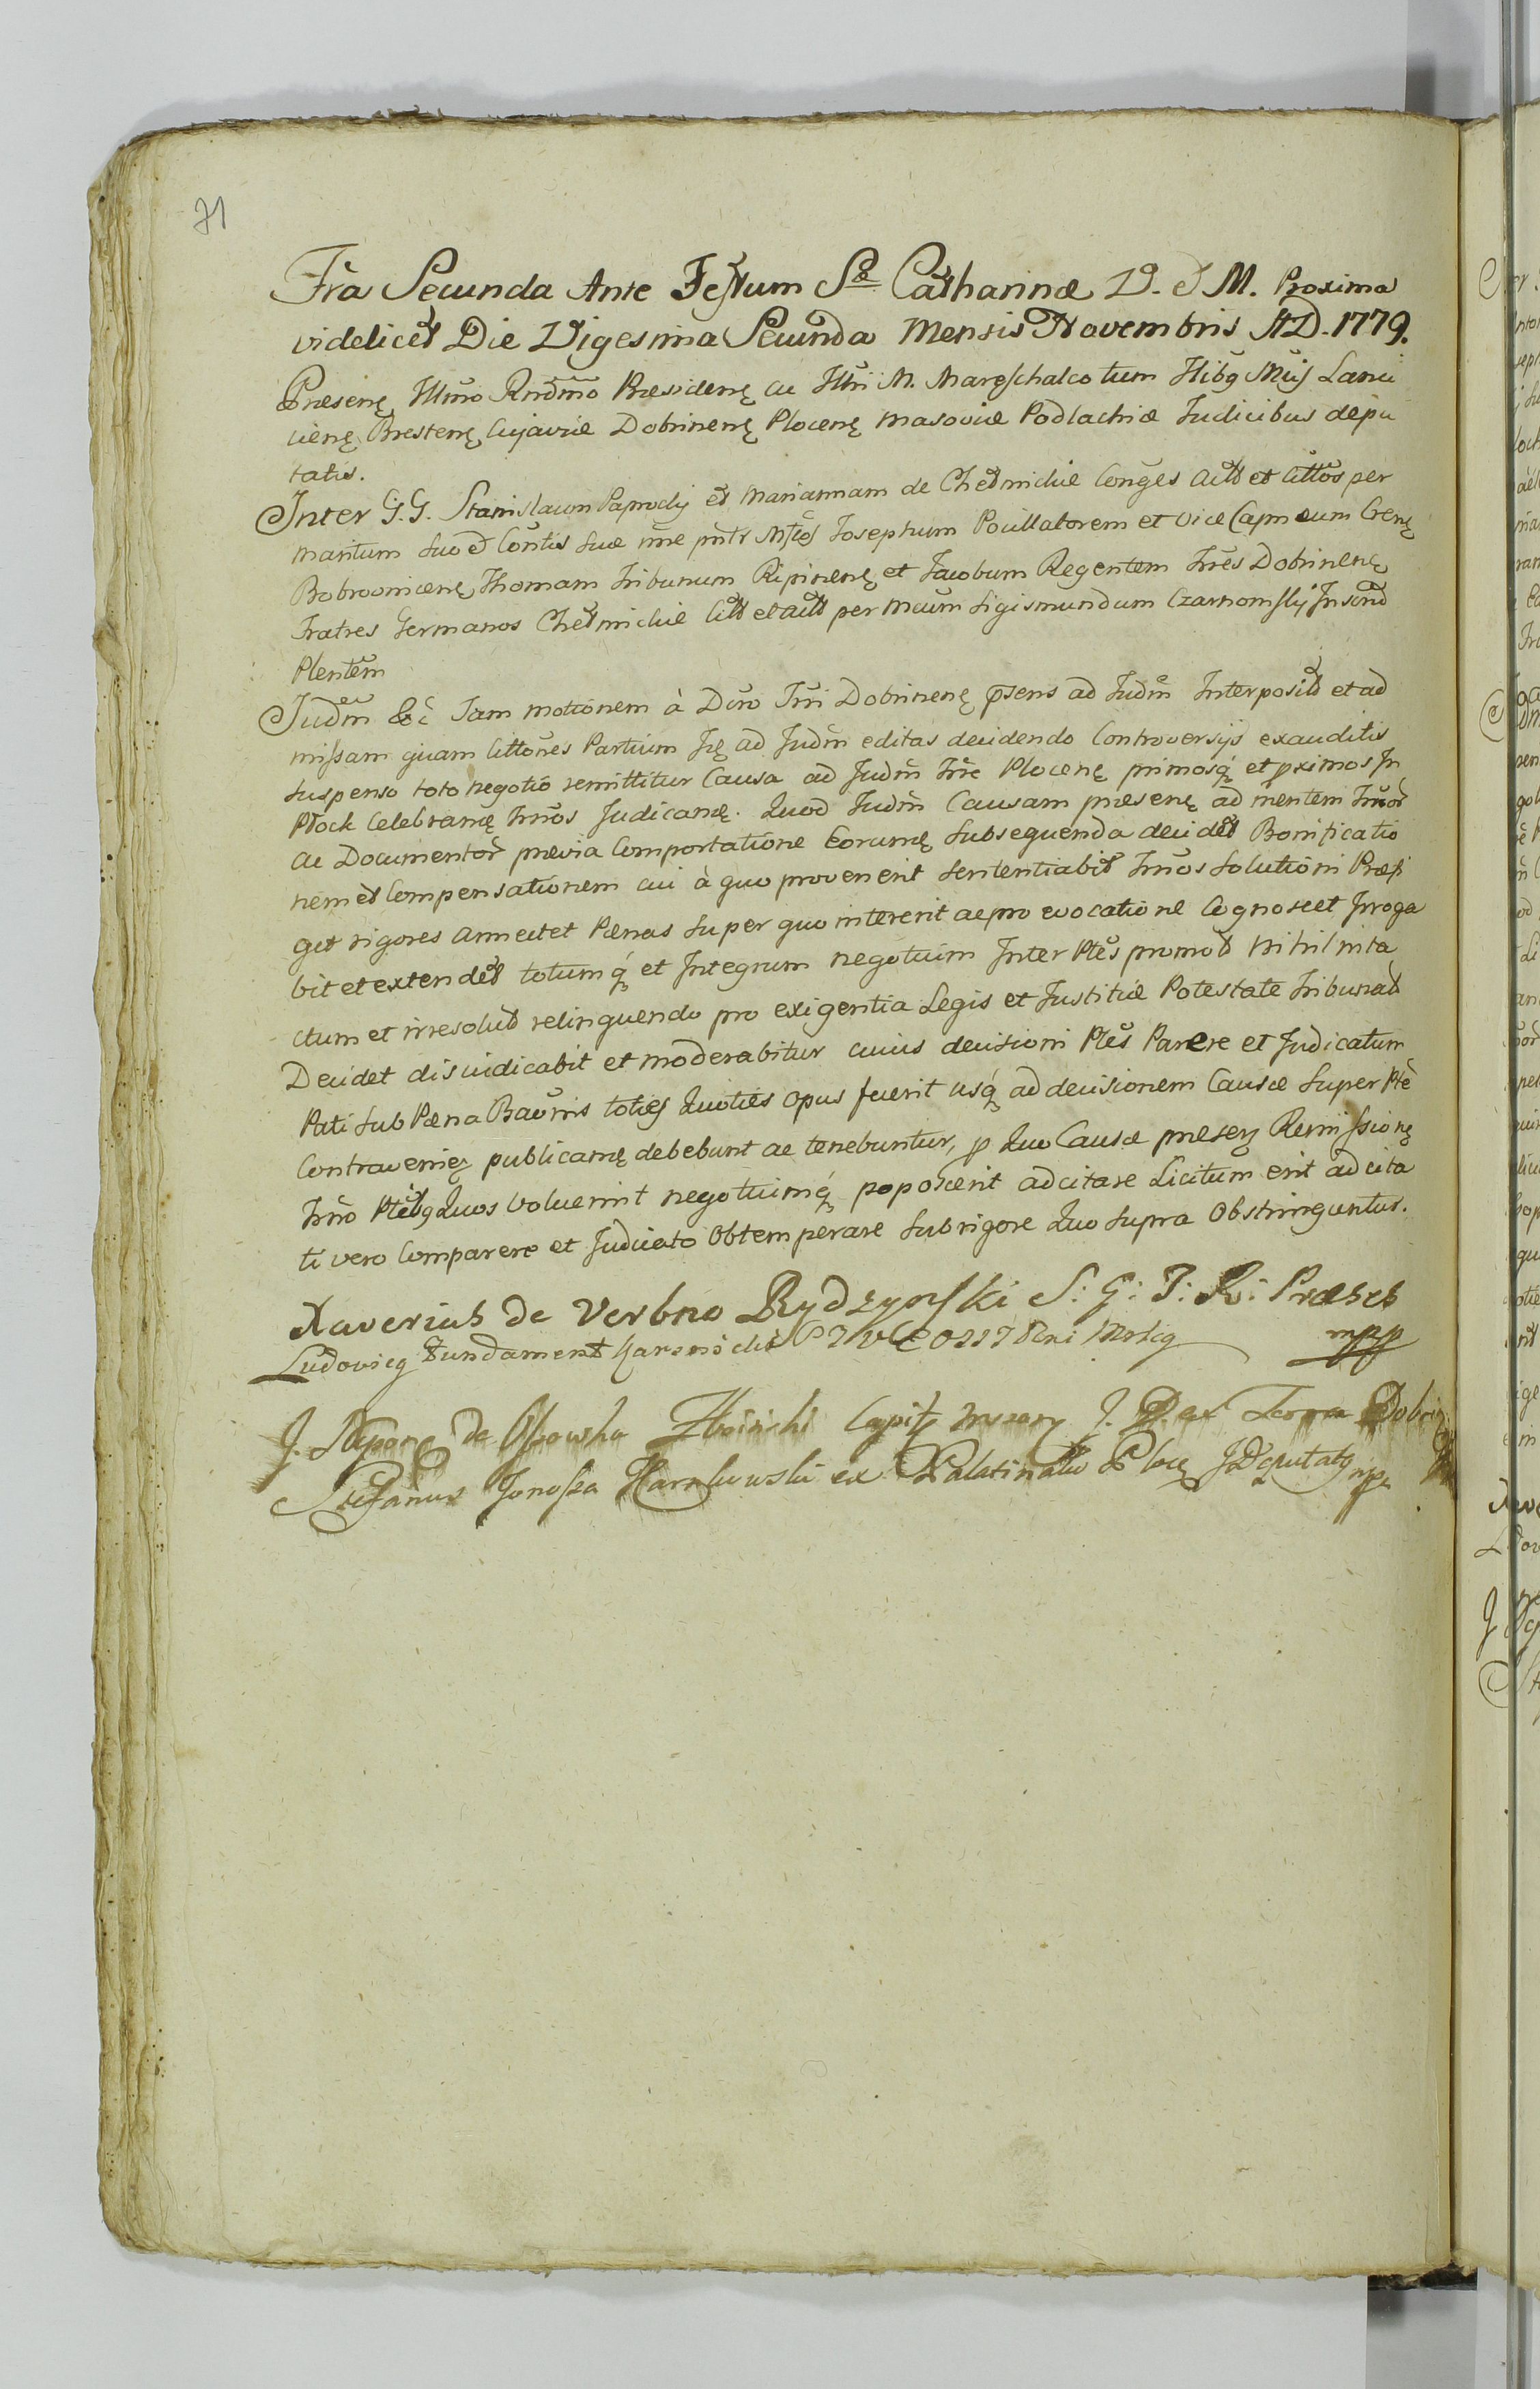 71
Fra Secunda Ante Festum Sæ Catharinæ V. et M. Proxima
videlicet Die Vigesima Secunda Mensis Novembris AD. 1779.
Præsenę Illmo Rndmo Præsidenę ac Illri M. Mareschalco tum
cienę Brestenę Cujaviæ Dobrinenę Plocenę Masoviæ Podlachiæ Judicibus depu
tatis.
Inter G.G. Stanislaum Paprocky et Mariannam de Chełmickie Conges Actt et Cittos per
maritum suo et Contis suæ nne Josephum Pocillatorem et Vice Capneum Crenę
Bobrovnicenę Thomam Tribunum Ripinenę et Jacobum Regentem Trres Dobrinenę
Fratres Germanos Chełmickie Citt et Actt per Mcum Sigismundum Czarnomsky
Plentem
Judm &c Jam motionem à Dcro Trri Dobrinenę psens ad Judm Interposit et ad
missam quam Cittones Partium ad Judm editas decidendo Controversijs exauditis
suspenso toto negotio remittitur Causa ad Judm Trre Plocenę primosq́ et pximos In
Płock Celebranę Trmos Judicanę. Quod Judm Causam præsenę ad mentem
ac Documentor prævia Comportatione Eorumę subsequenda decidet Bonificatio
nem et Compensationem cui à quo provenerit sententiabit Trmos solutioni Præfi
get rigores annectet Pænas super quo intererit ac pro evocatione Cognoscet Irroga
bit et extendet totumq́ et Integrum negotium Inter Ptes promot nihil inta
ctum et irresolut relinquendo pro exigentia Legis et Justitiæ Potestate Tribunal
Decidet disiudicabit et moderabitur cuius decisioni Ptes Parere et Judicatum
Pati sub Pæna Baonis toties Quoties opus fuerit usq́ ad decisionem Causæ super Pte
Contravenię publicanę debebunt ac tenebuntur, p Quo Causæ præsenę Remissionę
Trmo Ptibę Quos voluerint negotiumq́ poposcerit adcitare Licitum erit adcita
ti vero Comparere et Judicato Obtemperare sub rigore Quo supra Obstringuntur.
Xaverius de Verbno Rydzynski S: G: T: R: Præses
mpp
Ludovicg Fundament Karsnicki
J. de Zboinski Capit J. D. ex Terra Dobrin
Stefanus Jonosza Karnkowski ex Palatinatu Ploc J Deputatg mp